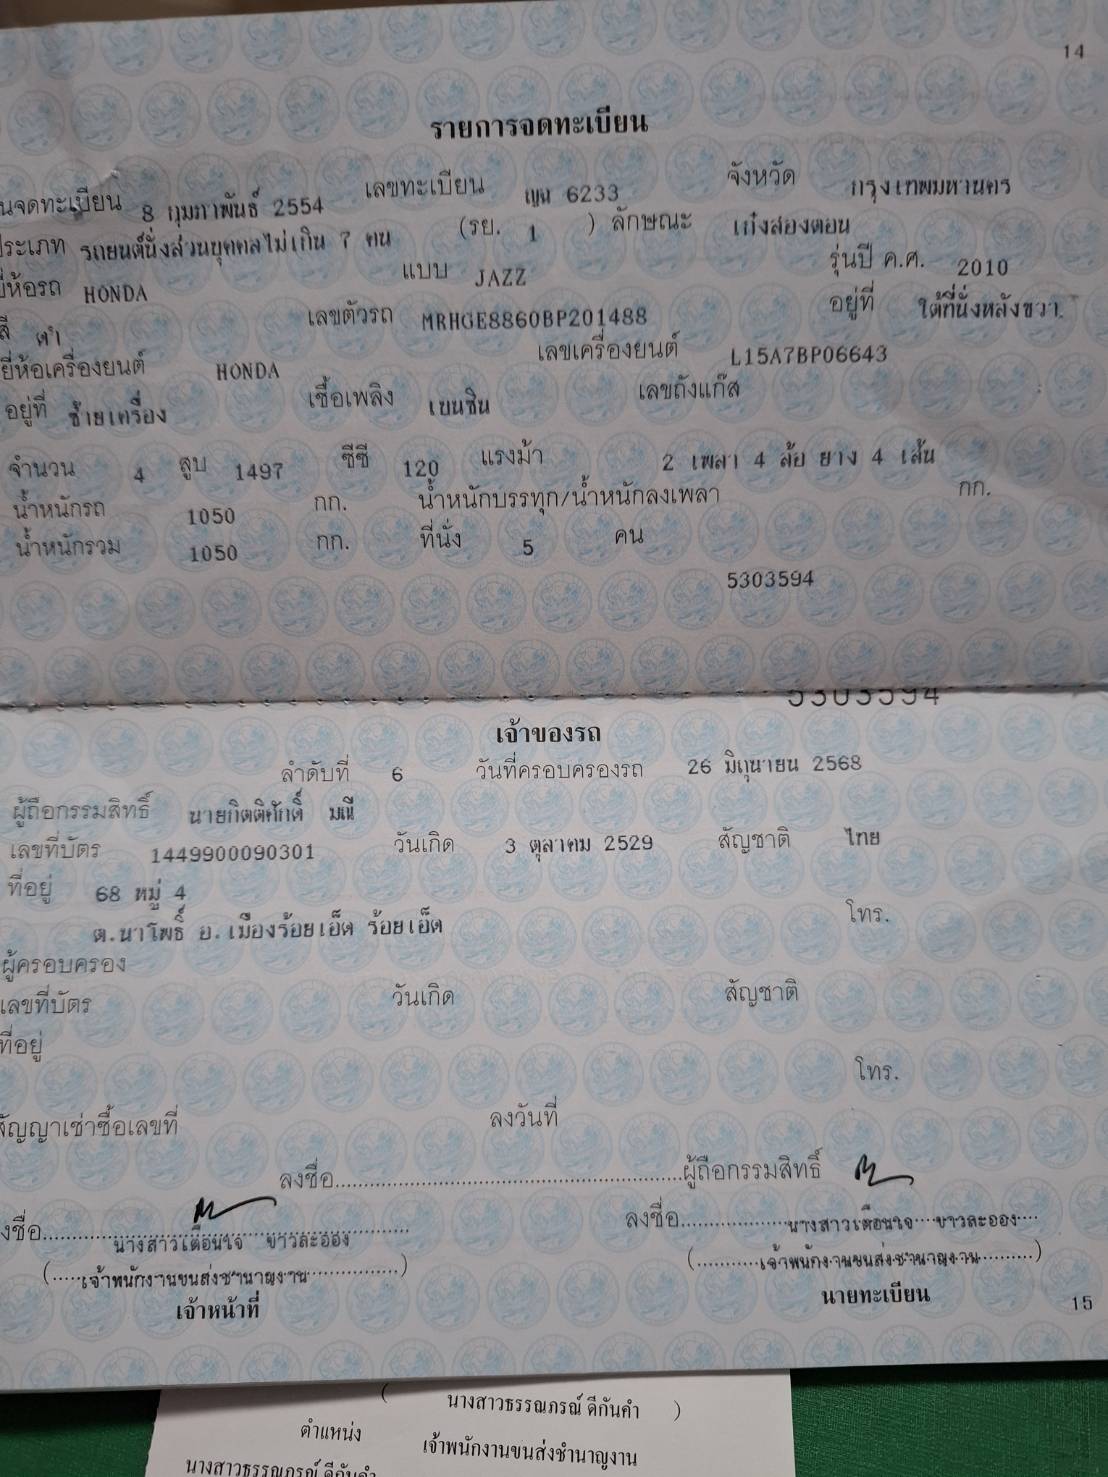 14
รายการจดทะเบียน
นจดทะเบียน 8 กุมภาพันธ์ 2554 เลขทะเบียน ญน 6233 จังหวัด กรุงเทพมหานคร
ประเภท รถยนต์นั่งส่วนบุคคลไม่เกิน 7 คน (รย. 1 ) ลักษณะ เก๋งสองตอน
ยี่ห้อรถ HONDA แบบ JAZZ รุ่นปี ค.ศ. 2010
สี ดำ เลขตัวรถ MRHGE8860BP201488 อยู่ที่ ใต้ที่นั่งหลังขวา
ยี่ห้อเครื่องยนต์ HONDA เลขเครื่องยนต์ L15A7BP06643
อยู่ที่ ซ้ายเครื่อง เชื้อเพลิง เบนซิน เลขถังแก๊ส
จำนวน 4 สูบ 1497 ซีซี 120 แรงม้า 2 เพลา 4 ล้อ ยาง 4 เส้น
น้ำหนักรถ 1050 กก. น้ำหนักบรรทุก/น้ำหนักลงเพลา กก.
น้ำหนักรวม 1050 กก. ที่นั่ง 5 คน
5303594
5303594
เจ้าของรถ
ลำดับที่ 6 วันที่ครอบครองรถ 26 มิถุนายน 2568
ผู้ถือกรรมสิทธิ์ นายกิตติศักดิ์ มณี
เลขที่บัตร 1449900090301 วันเกิด 3 ตุลาคม 2529 สัญชาติ ไทย
ที่อยู่ 68 หมู่ 4
ต.นาโพธิ์ อ.เมืองร้อยเอ็ด ร้อยเอ็ด โทร.
ผู้ครอบครอง
เลขที่บัตร วันเกิด สัญชาติ
ที่อยู่
โทร.
สัญญาเช่าซื้อเลขที่ ลงวันที่
ลงชื่อ........................................ผู้ถือกรรมสิทธิ์
งชื่อ........นางสาวเตือนใจ ขาวละออง........ ลงชื่อ........นางสาวเตือนใจ ขาวละออง....
(.....เจ้าพนักงานขนส่งชำนาญงาน..........) (..........เจ้าพนักงานขนส่งชำนาญงาน..........)
เจ้าหน้าที่ นายทะเบียน
15
( นางสาวธรรณภรณ์ ดีกันคำ )
ตำแหน่ง เจ้าพนักงานขนส่งชำนาญงาน
นางสาวธรรณภรณ์ ดีกันคำ